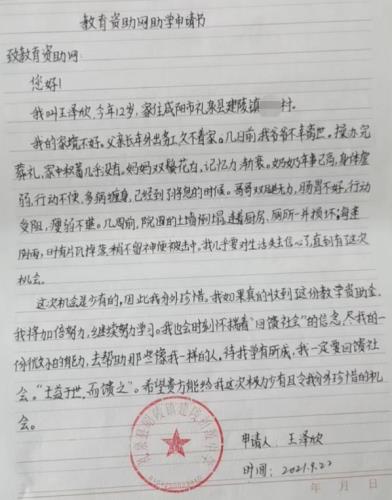 教育资助网助学申请书
致教育资助网:
您好!
我叫王泽欣,今年12岁,家住咸阳市礼泉县建陵镇 村。
我的家境不好。父亲长年外出务工,久不着家。几日前,我爷爷不幸离世。操办完
葬礼,家中积蓄几乎没有。妈妈双鬓花白,记忆力渐衰。奶奶年事已高,身体虚
弱,行动不便,多病缠身,已经到了将息的时候。哥哥双腿无力,肠胃不好,行动
受阻,瘦弱不堪。几周前,院围的土墙倒塌,连着厨房、厕所一并损坏;每逢
阴雨,时有片瓦掉落,稍不留神便被击中。我几乎要对生活失去信心了,直到有这次
机会。
这次机会是少有的,因此我分外珍惜。我如果真的收到这份教学资助金,
我将加倍努力,继续努力学习。我也会时刻怀揣着“回馈社会”的信念,尽我的一
份微小的能力,去帮助那些像我一样的人,待我学有所成,我一定要回馈社
会。“益于世,而馈之”。希望贵方能给我这次极为少有且令我分外珍惜的机
会。
申请人:王泽欣
时间:2021.9.22
年 月 日